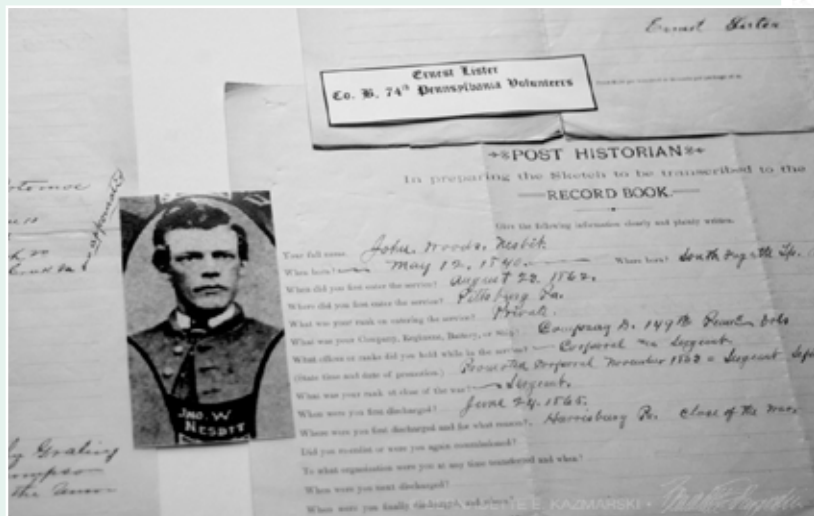 Ernest Lister
Ernest Lister
Co. B, 74th Pennsylvania Volunteers
POST HISTORIAN
In preparing the Sketch to be transcribed to the
RECORD BOOK.
Give the following information clearly and plainly written.
Your full name. John Woods Nesbit
When born? May 12, 1840. Where born? South Fayette Tp.
When did you first enter the service? August 22, 1862.
Where did you first enter the service? Pittsburg Pa.
What was your rank on entering the service? Private.
What was your Company, Regiment, Battery, or Ship? Company D. 149th
What offices or ranks did you hold while in the service? Corporal Sergeant
(State time and date of promotion.) Promoted Corporal November 1862 Sergeant
What was your rank at close of the war? Sergeant.
When were you first discharged? June 24, 1865.
Where were you first discharged and for what reason? Harrisburg Pa. Close of the war.
Did you re-enlist or were you again commissioned?
To what organization were you at any time transferred and when?
When were you next discharged?
When were you finally discharged, and where?
appomattox
JNO. W
NESBIT
the
E. KAZMARSKI